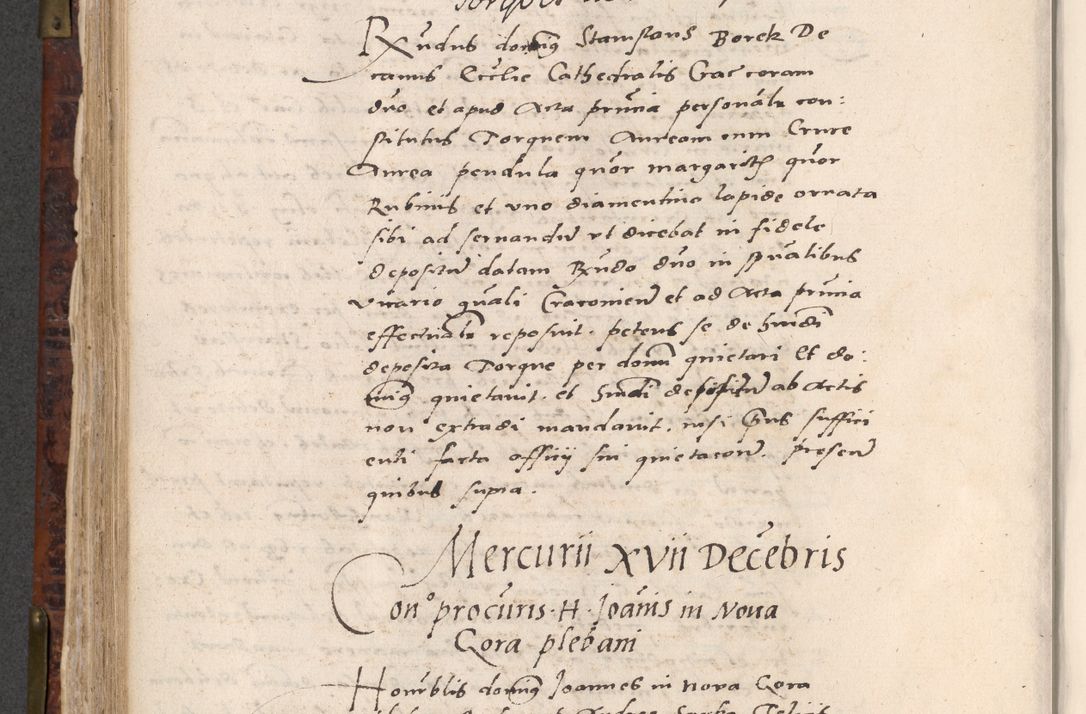 Rxndus dominus Stanislaus Borek De
canus Ecclie Cathedralis Crac coram
dno et apud Acta prnia personalr con:
stitutus Torquem Auream cum Cruce
Aurea pendula quor margaritis quor
Rubinis et uno diamentino lapide ornata
sibi ad servandu ut dicebat in fidele
depositu datam Rxndo dno in spualibus
vicario gnali Cracovien et ad Acta prnia
effectualr reposuit. petens se de humdi
deposita Torque per domin quietari Et do:
minus quietavit. et humdi depositu ab actis
non extradi mandavit. nisi prius suffici
enti facta officij sui quietacone. presen
quibus supra.
Mercurii XVII Decebris
Con° procuris H Joanis in Nova
Gora plebani
Honrblis dominus Joannes in nova Gora